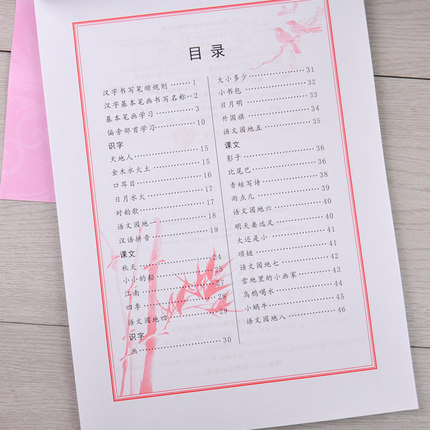 目录
汉字书写笔顺规则 1
汉字基本笔画书写名称 2
基本笔画学习 3
偏旁部首学习 10
识字
天地人 15
金木水火土 15
口耳目 16
日月水火 17
对韵歌 17
语文园地一 18
汉语拼音 19
课文
秋天 24
小小的船 25
江南
四季 28
语文园地四 29
识字
画 30
大小多少 31
小书包 32
日月明 33
升国旗 34
语文园地五 35
课文
影子 36
比尾巴 36
青蛙写诗 37
雨点儿
语文园地六 40
明天要远足 40
大还是小 41
项链 41
语文园地七 42
雪地里的小画家 43
乌鸦喝水 44
小蜗牛 45
语文园地八 46